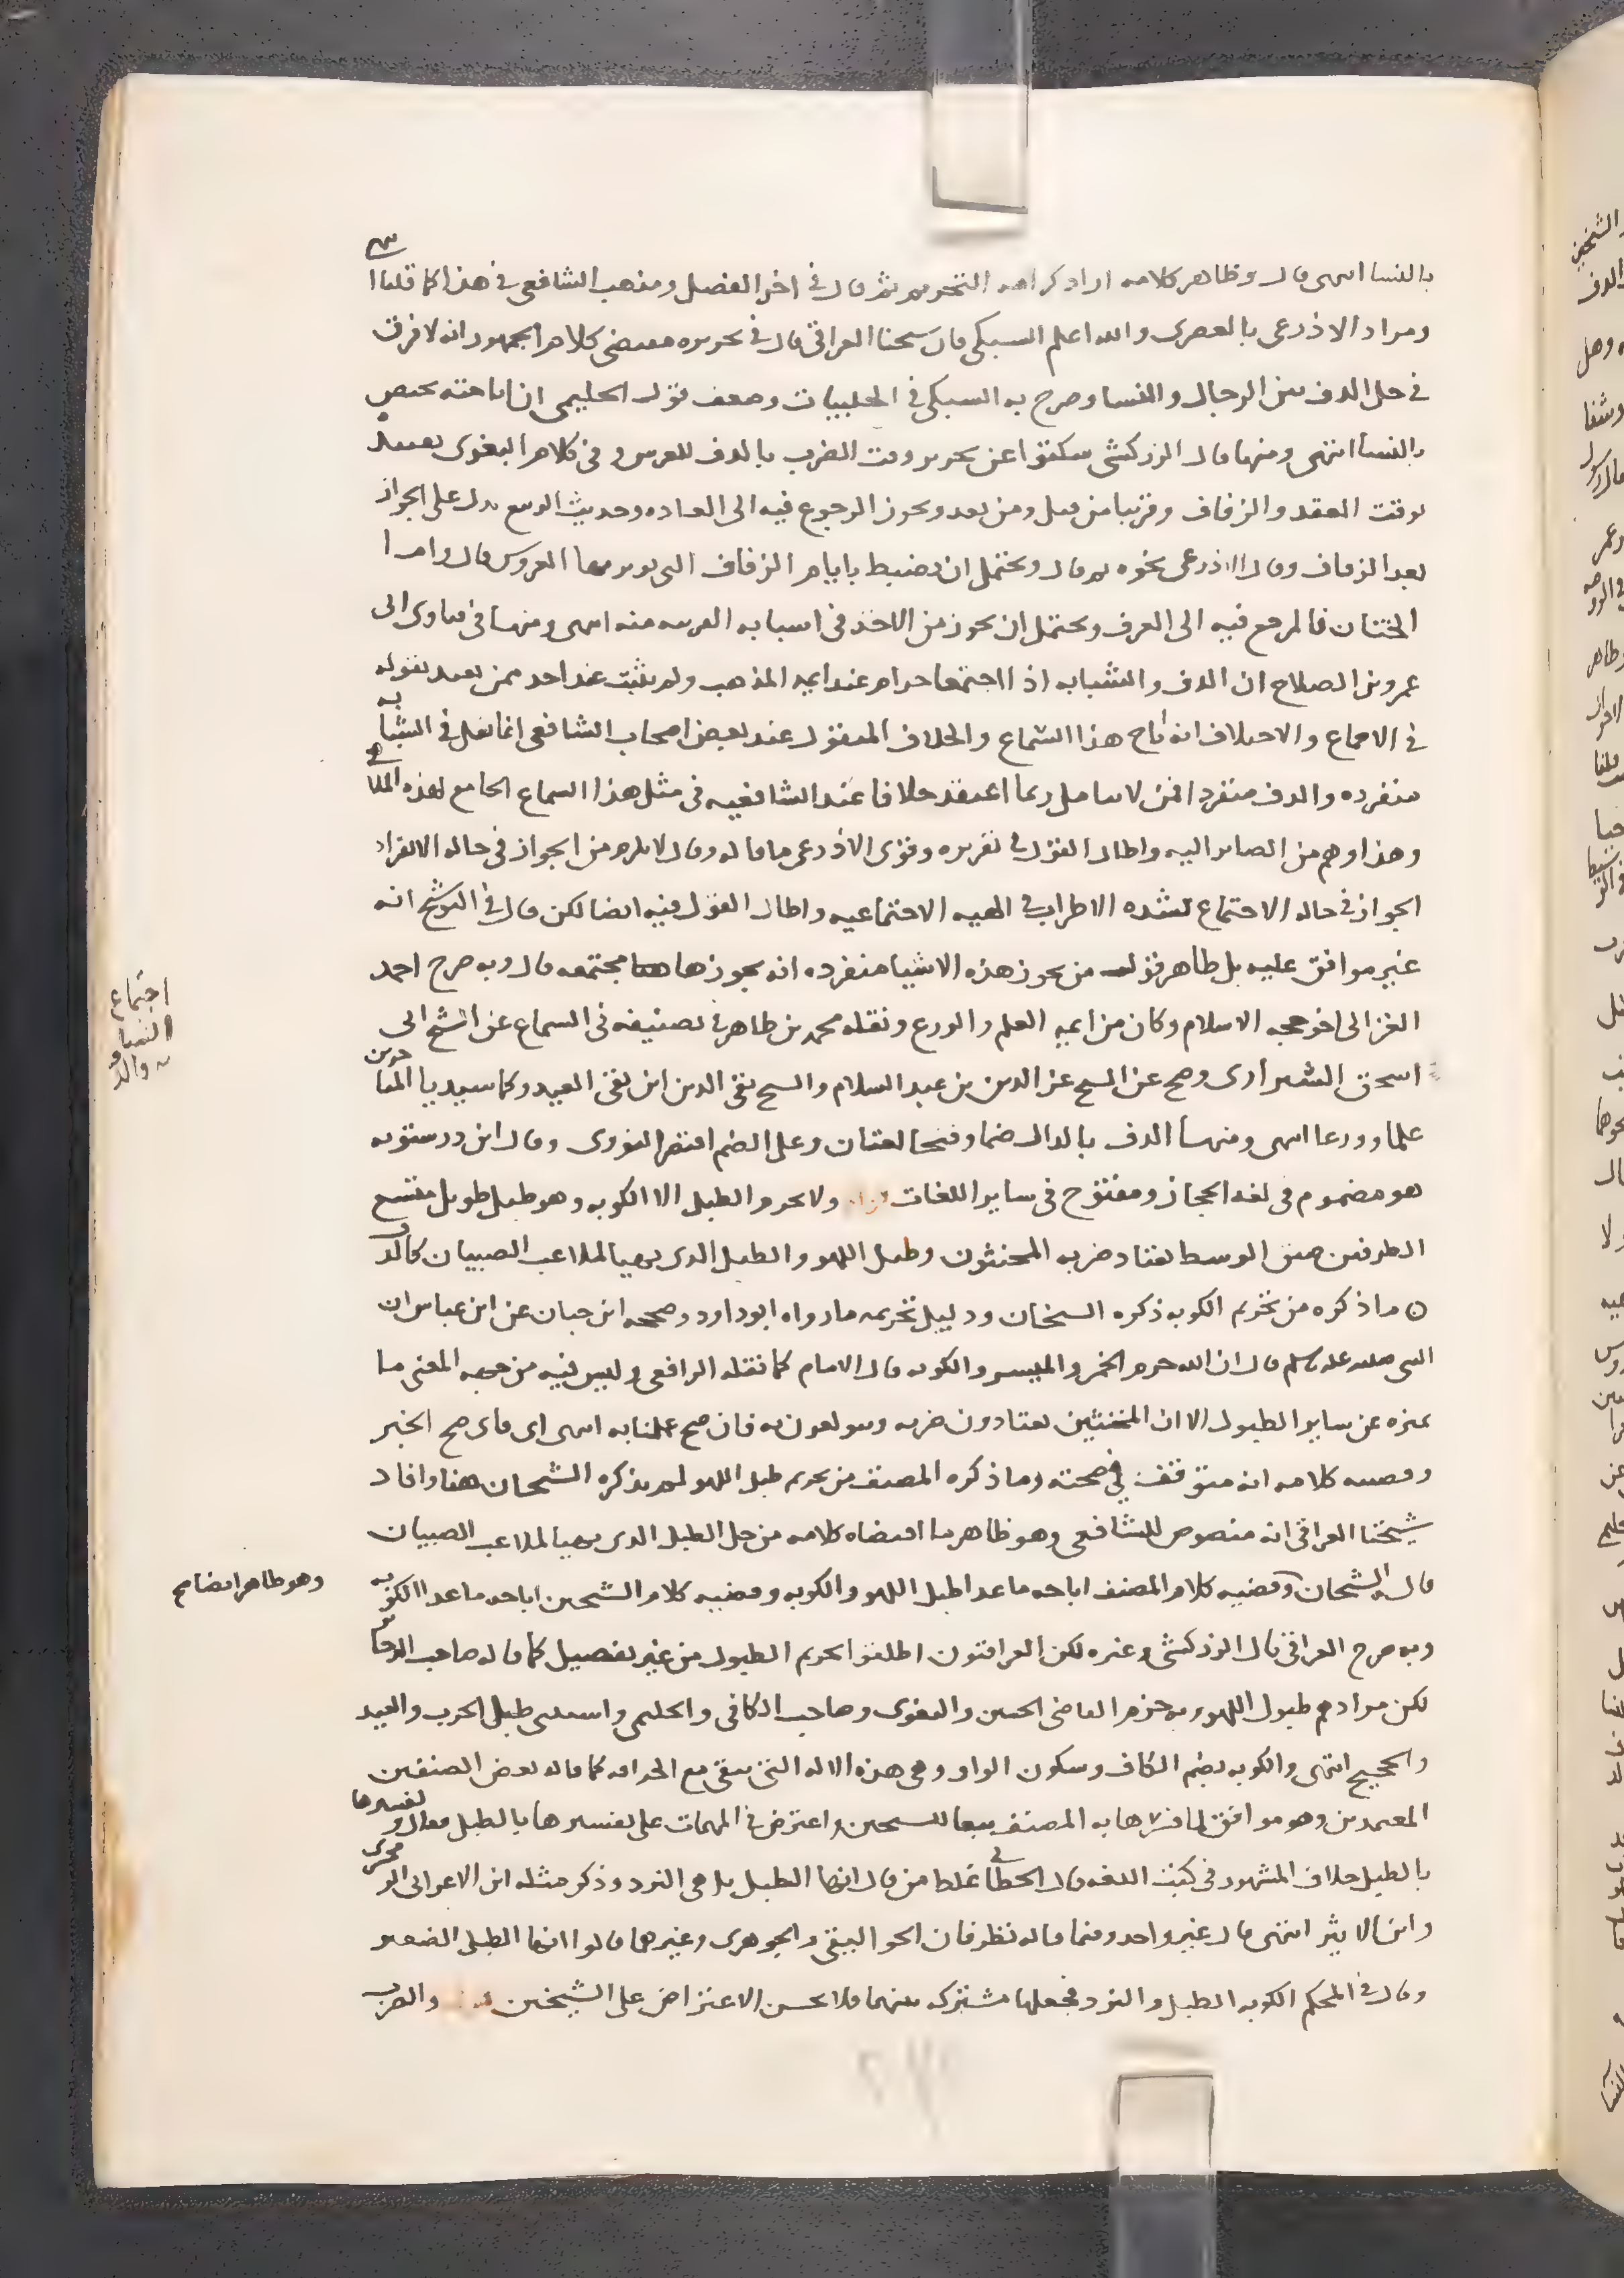 بالنسا انتهى قال وظاهر كلامه اراد كراهه التحريم ثم قال في اخر الفصل ومذهب الشافعي في هذا كما قلنا
ومراد الاذرعي بالعصرى والله اعلم السبكي قال شيخنا العراقي قال في تحريره مقتضى كلام الجمهور انه لا فرق
في حل الدف بين الرجال والنسا وصرح به السبكي في الحلبيات وضعف قول الحليمي ان اباحته تختص
بالنسا انتهى ومنها قال الزركشي سكتوا عن تحرير وقت الضرب بالدف للعرس وفي كلام البغوي تقييد
بوقت العقد والزفاف وقريبا من قبل ومن بعد ويجوز الرجوع فيه الى العاده وحديث الربيع يدل على الجواز
بعد الزفاف وقال الاذرعي نحوه ثم قال ويحتمل ان يضبط بايام الزفاف التي يوثر بها العروس قال واما
الختان فالمرجع فيه الى العرف ويحتمل ان يجوز من الاخذ في اسبابه القريبه منه انتهى ومنها في فتاوى ابي
عمرو بن الصلاح ان الدف والشبابه اذا اجتمعا حرام عند ايمه المذهب ولم يثبت عند احد ممن يعتد بقوله
في الاجماع والاختلاف انه اباح هذا السماع والخلاف المنقول عند بعض اصحاب الشافعي انما نقل في الشبابه
منفرده والدف منفردا فمن لا يتامل ربما اعتقد خلافا عند الشافعيه في مثل هذا السماع الجامع لهذه الملاهي
وهذا وهم من الصاير اليه واطال القول في تقريره وقوى الاذرعي ما قاله وقال لا يلزم من الجواز في حاله الانفراد
الجواز في حاله الاجتماع لشده الاطراب في الهيه الاجتماعيه واطال القول فيه ايضا لكن قال في التوشيح انه
غير موافق عليه بل ظاهر قول من يجوز هذه الاشيا منفرده انه يجوزها مجتمعه قال وبه صرح احمد
الغزالي اخو حجه الاسلام وكان من ايمه العلم والورع ونقله محمد بن طاهر في تصنيفه في السماع عن الشيخ ابي
اسحق الشيرازى وصح عن الشيخ عز الدين بن عبد السلام والشيخ تقي الدين ابن دقيق العيد وكما سيديا المتاخرين
علما وورعا انتهى ومنها الدف بالدال ضما وفتحا لغتان وعلى الضم اقتصر النووى وقال ابن درستويه
هو مضموم في لغه الحجاز ومفتوح في ساير اللغات قال ولا يحرم الطبل الا الكوبه وهو طبل طويل متسع
الطرفين ضيق الوسط يعتاد ضربه المخنثون وطبل اللهو والطبل الذي يهيا لملاعب الصبيان كالدف
ن ما ذكره من تحريم الكوبه ذكره الشيخان ودليل تحريمه ما رواه ابو داود وصححه ابن حبان عن ابن عباس ان
النبي صلى الله عليه وسلم قال ان الله حرم الخمر والميسر والكوبه قال الامام كما نقله الرافعي وليس فيه من جهه المعنى ما
يميزه عن ساير الطبول الا ان المخنثين يعتادون ضربه ويتولعون به فان صح عملنا به انتهى اى فان صح الخبر
وقضيه كلامه انه متوقف في صحته وما ذكره المصنف من تحريم طبل اللهو لم يذكره الشيخان هنا وافاد
شيخنا العراقي انه منصوص للشافعي وهو ظاهر ما اقتضاه كلامه من حل الطبل الذي يهيا لملاعب الصبيان
قاله الشيخان وقضيه كلام المصنف اباحه ما عدا طبل اللهو والكوبه وقضيه كلام الشيخين اباحه ما عدا الكوبه
وبه صرح العراقي قال الزركشي وغيره لكن العراقيون اطلقوا تحريم الطبول من غير تفصيل كما قاله صاحب الذخاير
لكن مرادهم طبول اللهو وبه جزم القاضي الحسين والبغوى وصاحب الكافي والحليمي واستثنى طبل الحرب والعيد
والحجيج انتهى والكوبه بضم الكاف وسكون الواو وهي هذه الاله التي تبقى مع الحرافه كما قاله بعض المصنفين
المعتمدين وهو موافق لما فسرها به المصنف تبعا للشيخين واعترض في المهمات على تفسيرها بالطبل فقال وتفسيرها
بالطبل خلاف المشهور في كتب اللغه قال الخطابي غلط من قال انها الطبل بل هي النرد وذكر مثله ابن الاعرابي الزمخشرى
وابن الاثير انتهى قال غير واحد وفيما قاله نظر فان الجواليقي والجوهرى وغيرهما قالوا انها الطبل الصغير
وقال في المحكم الكوبه الطبل والنرد فجعلها مشتركه بينهما فلا يحسن الاعتراض على الشيخين والضرب
اجتماع
الشبابه
والد
وهو ظاهر ايضا صح